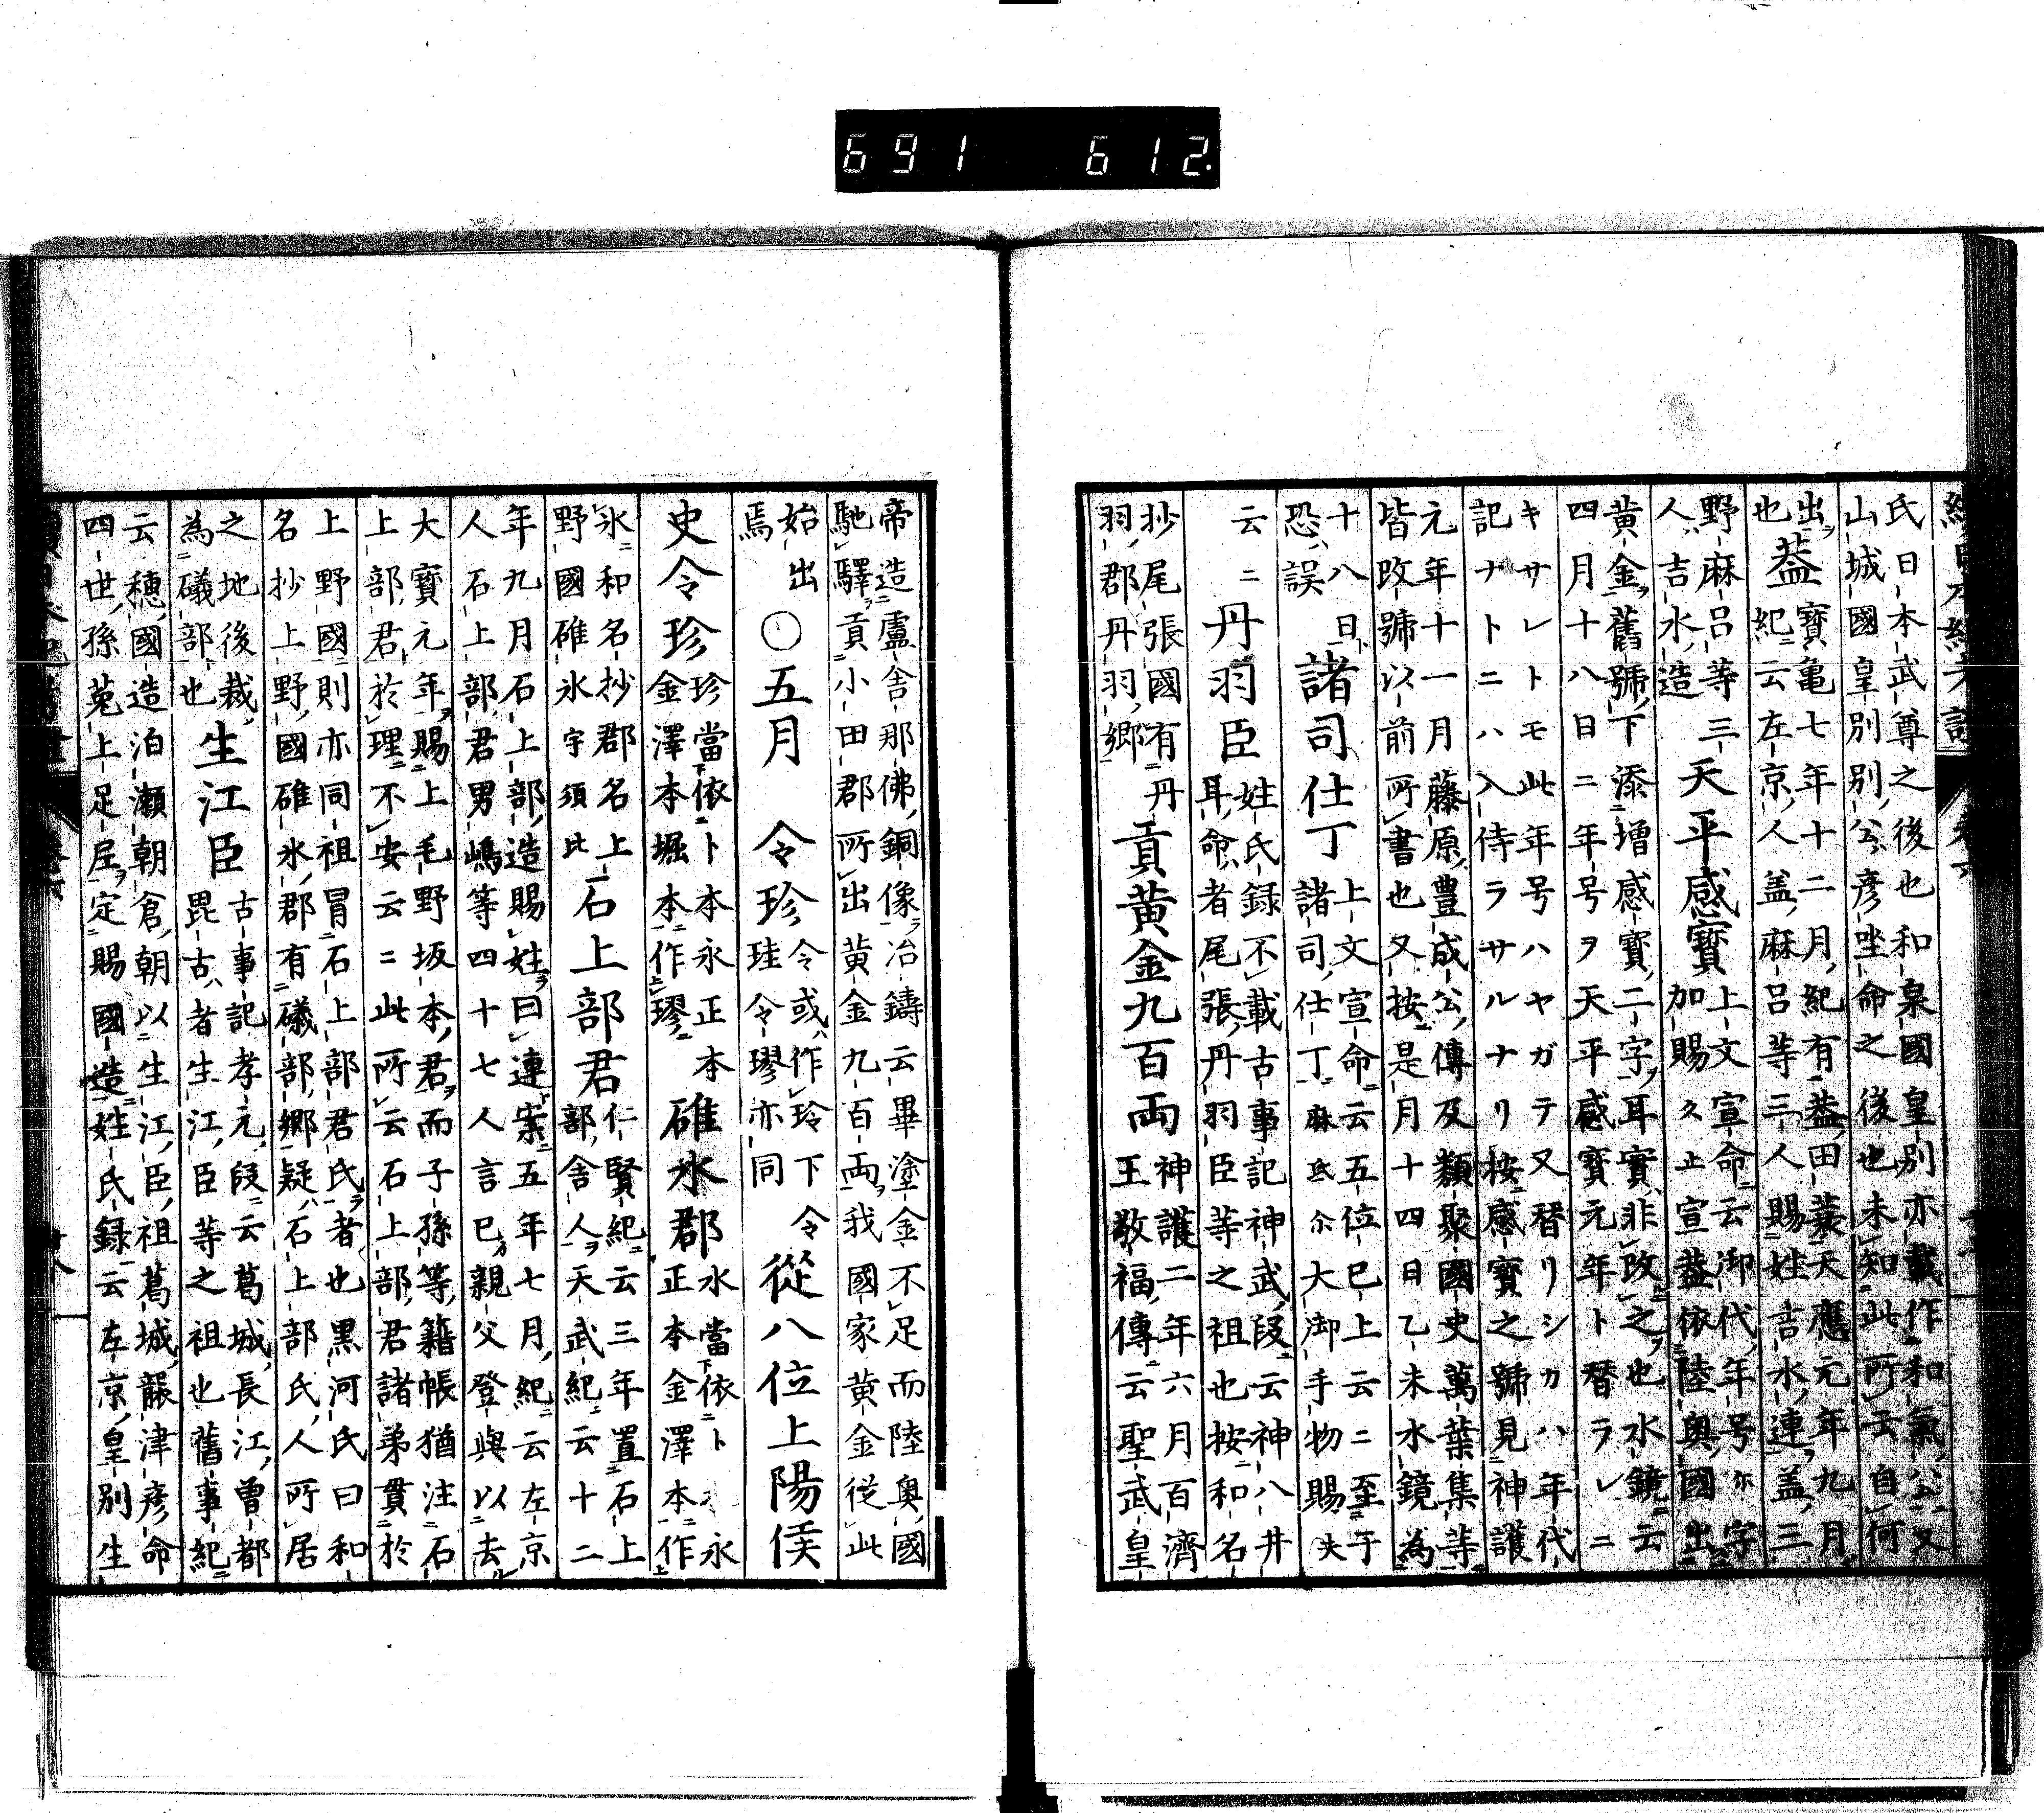 691 612.
氏日本武尊之後也和泉國皇別亦載作和氣公又
山城國皇別別公彦坐命之後也未知此所云自何
出
也
益
寶亀七年十二月紀有益田蓑天應元年九月
紀云左京人盖麻呂等三人賜姓吉水連盖三
野麻呂等三
人吉水造
天平感寶
上文宣命云御代年号尓字
加賜久止宣盖依陸奥國出
黄金舊號下添増感寶二字耳實非改之也水鏡云
四月十八日ニ年号ヲ天平感寶元年ト替ラレニ
キサレトモ此年号ハヤガテ又替リシカハ年代
記ナトニハ入侍ラサルナリ按感寶之號見神護
元年十一月藤原豊成公傳及類聚國史萬葉集等
皆改號以前所書也又按是月十四日乙未水鏡為
十八日
恐誤
諸司仕丁
上文宣命云五位已上云ニ至于
諸司仕丁麻氐尓大御手物賜夫
云ニ
丹羽臣
姓氏録不載古事記神武段云神八井
耳命者尾張丹羽臣等之祖也按和名
抄尾張國有丹
羽郡丹羽郷
貢黄金九百両
神護二年六月百濟
王敬福傳云聖武皇
帝造盧舎那佛銅像冶鑄云畢塗金不足而陸奥國
馳驛貢小田郡所出黄金九百両我國家黄金従此
始出
焉
○五月
令珍
令或作玲下令
珪令璆亦同
從八位上陽侯
史令珍
珍當依卜本永正本
金澤本堀本本作璆
碓氷郡
水當依卜永
正本金澤本作
氷和名抄郡名上
野國碓氷字須比
石上部君
仁賢紀云三年置石上
部舎人天武紀云十二
年九月石上部造賜姓曰連案五年七月紀云左京
人石上部君男嶋等四十七人言己親父登與以去
大寶元年賜上毛野坂本君而子孫等籍帳猶注石
上部君於理不安云ニ此所云石上部君諸弟貫於
上野國則亦同祖冒石上部君氏者也黒河氏曰和
名抄上野國碓氷郡有礒部郷疑石上部氏人所居
之地後裁
為礒部也
生江臣
古事記孝元段云葛城長江曽都
毘古者生江臣等之祖也舊事紀
云穂國造泊瀬朝倉朝以生江臣祖葛城襲津彦命
四世孫菟上足尼定賜國造姓氏録云左京皇別生